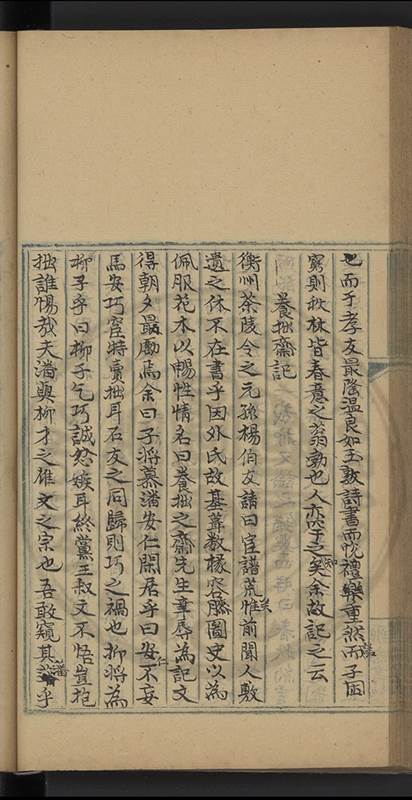 也而于孝友最隆溫良如玉敦詩書而悅禮樂重然而子因
窮則秋林皆春意之翁勃也人亦之笑余故記之云
養拙齋記
衡州茶陵令之元孫楊伯友請曰宦譜荒惟前聞人敷
遺之休不在書乎因外氏故基葺數椽容膝圖史以為
佩服花木以暢性情名曰養拙之齋先生幸辱為記文
得朝夕最勵焉余曰子將慕潘安仁閑居乎曰安仁不妄
馬安巧宦特賣拙耳石友之同歸則巧之禍也抑將為
柳子乎曰柳子乞巧誠忿嫉耳終黨王叔文不悟豈抱
拙誰惕哉夫潘與柳才之雄文之宗也吾敢窺其潘乎